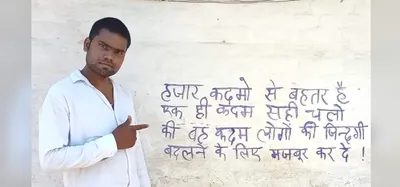 हजार कदमो से बहतर है
एक ही कदम सही चलो
की वह कदम लोगों की जिन्दगी
बदलने के लिए मजबूर कर दे !